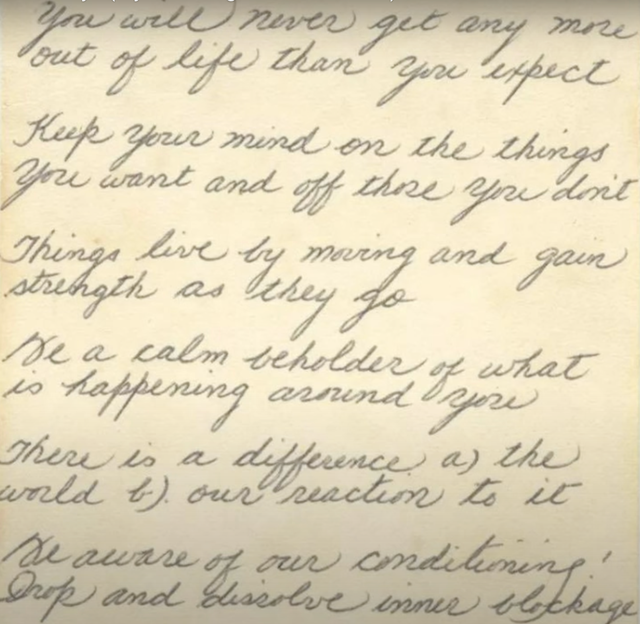 You will never get any more
out of life than you expect
Keep your mind on the things
You want and off those you don't
Things live by moving and gain
strength as they go
Be a calm beholder of what
is happening around you
There is a difference a) the
world b). our reaction to it
Be aware of our conditioning!
Drop and dissolve inner blockage